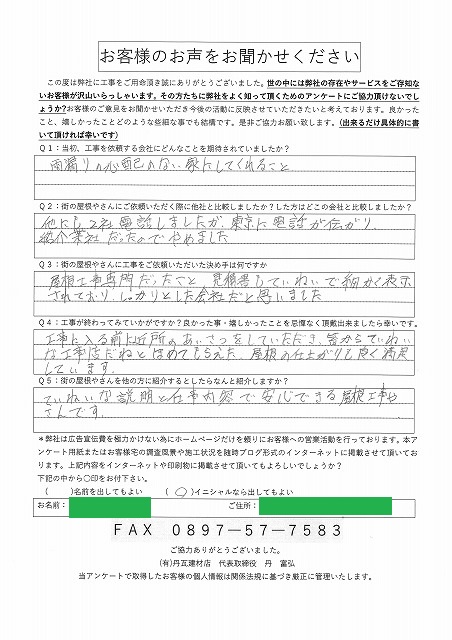 お客様のお声をお聞かせください
この度は弊社に工事をご用命頂き誠にありがとうございました。世の中には弊社の存在やサービスをご存知な
いお客様が沢山いらっしゃいます。その方たちに弊社をよく知って頂くためのアンケートにご協力頂けないでし
ょうか?お客様のご意見をお聞かせいただき今後の活動に反映させていただきたいと考えております。良かった
こと、嬉しかったことどのような些細な事でも結構です。是非ご協力お願い致します。(出来るだけ具体的に書
いて頂ければ幸いです)
Q1:当初、工事を依頼する会社にどんなことを期待されていましたか?
雨漏りの心配のない家にしてくれること
Q2:街の屋根やさんにご依頼いただく際に他社と比較しましたか?した方はどこの会社と比較しましたか?
他にも2社電話しましたが、東京に電話が伝がり、
紹介業社だったのでやめました
Q3:街の屋根やさんに工事をご依頼いただいた決め手は何ですか
屋根工事専門だったこと 見積書もていねいで細かく表示
されており、しっかりとした会社だと思いました
Q4:工事が終わってみていかがですか?良かった事・嬉しかったことを忌憚なく頂戴出来ましたら幸いです。
工事に入る前に近所のあいさつをしていただき、皆からていねい
な工事店だねとほめてもらえた、屋根の仕上がりも良く満足
しています。
Q5:街の屋根やさんを他の方に紹介するとしたらなんと紹介しますか?
ていねいな説明と仕事内容で安心できる屋根工事や
さんです。
*弊社は広告宣伝費を極力かけない為にホームページだけを頼りにお客様への営業活動を行っております。本ア
ンケート用紙またはお客様宅の調査風景や施工状況を随時ブログ形式のインターネットに掲載させて頂いてお
ります。上記内容をインターネットや印刷物に掲載させて頂いてもよろしいでしょうか?
下記の中から〇印をお付下さい。
( )名前を出してもよい (〇)イニシャルなら出してもよい
お名前: ご住所:
FAX 0897-57-7583
ご協力ありがとうございました。
(有)丹瓦建材店 代表取締役 丹 富弘
当アンケートで取得したお客様の個人情報は関係法規に基づき厳正に管理いたします。